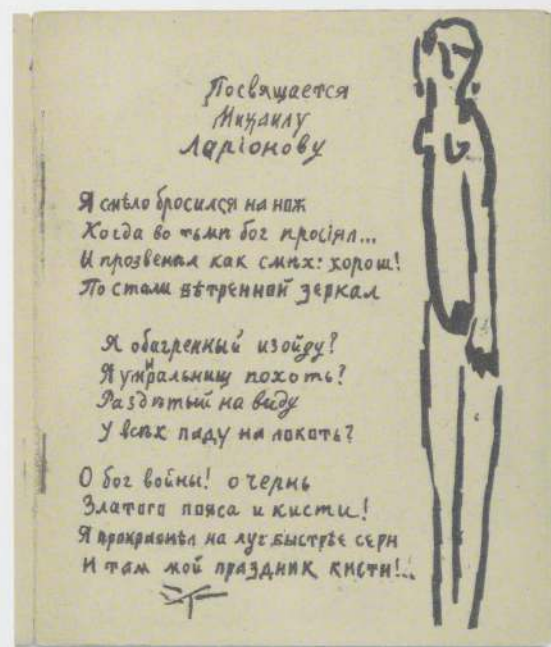 Посвящается
Михаилу
Ларіонову
Я смѣло бросился на нож
Когда во тьмѣ бог просіял...
И прозвенѣл как смѣх: хорош!
По стали вѣтренной зеркал
Я обагренный изойду?
Я умиральниц похоть?
Раздѣтый на виду
У всѣх паду на локоть?
О бог войны! очернь
Златого пояса и кисти!
Я на луч быстрѣе серн
И там мой праздник кисти!..